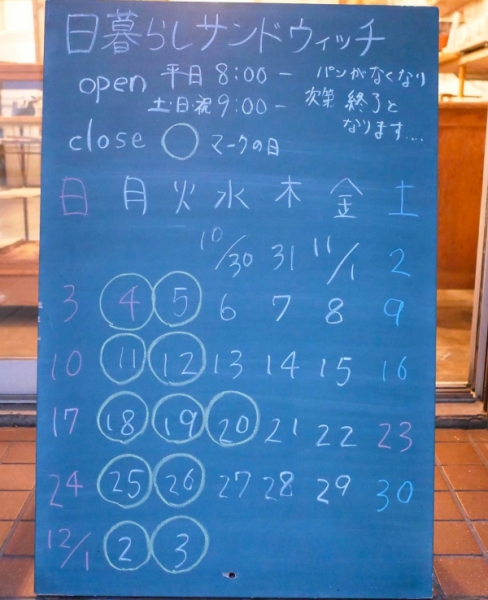 日暮らしサンドウィッチ
open 平日 8:00 - パンがなくなり
土・日・祝 9:00 - 次第 終了と
なります....
close ○ マークの日
日 月 火 水 木 金 土
10/30 31 11/1 2
3 4 5 6 7 8 9
10 11 12 13 14 15 16
17 18 19 20 21 22 23
24 25 26 27 28 29 30
12/1 2 3